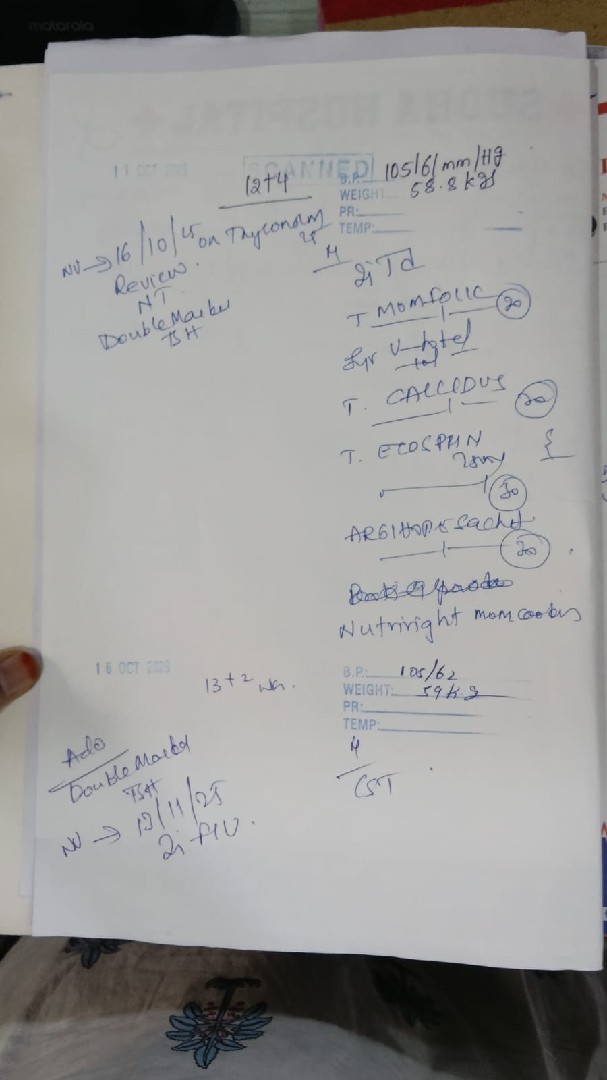 motorola
SUDHA HOSPITAL +
11 OCT 2025
SCANNED
12+4
B.P.: 105/61 mm/Hg
WEIGHT: 58.8 kgs
PR:
TEMP:
NV → 16/10/25
on Thyronorm 25
Review.
NT
Double Marker
TSH
Inj Td
T MOMFOLIC 30
Syr
T. CALCIDUS 30
T. ECOSPRIN
75mg
30
ARGIHOPE Sachet
30
Nutriright mom cookies
16 OCT 2025
13+2 wks.
B.P.: 105/62
WEIGHT: 59 kgs
PR:
TEMP:
Ado
Double Marker
TSH
NV → 13/11/25
CST